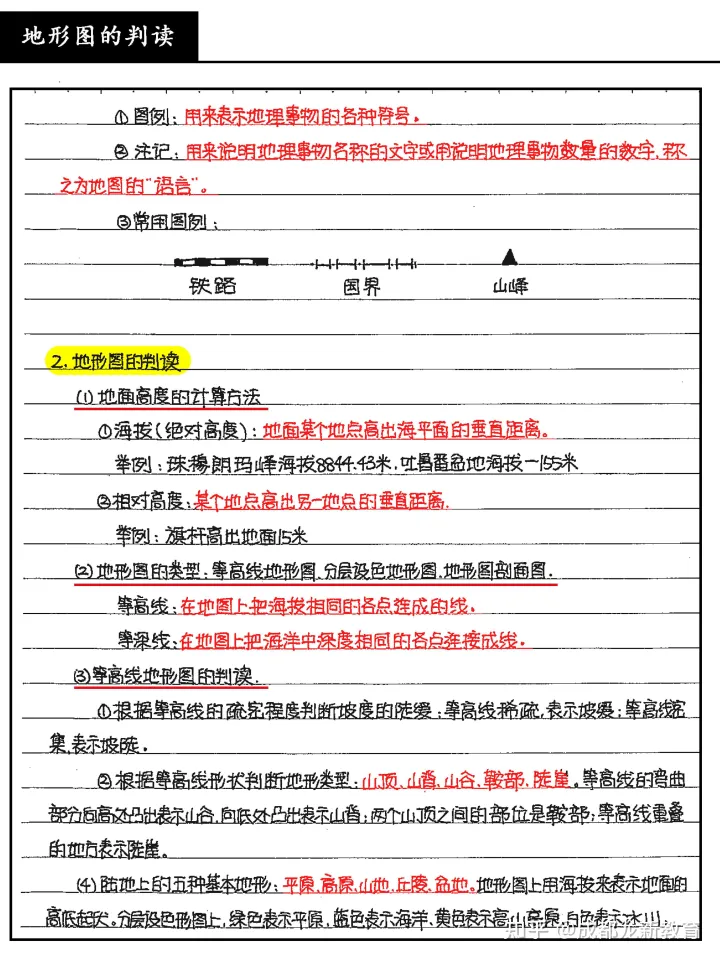 地形图的判读
①图例：用来表示地理事物的各种符号。
②注记：用来说明地理事物名称的文字或用说明地理事物数量的数字，称
之为地图的“语言”。
③常用图例：
铁路 国界 山峰
2.地形图的判读
(1)地面高度的计算方法
①海拔(绝对高度)：地面某个地点高出海平面的垂直距离。
举例：珠穆朗玛峰海拔8844.43米，吐鲁番盆地海拔-155米
②相对高度：某个地点高出另一地点的垂直距离.
举例：旗杆高出地面15米
(2)地形图的类型：等高线地形图、分层设色地形图、地形图剖面图.
等高线：在地图上把海拔相同的各点连成的线.
等深线：在地图上把海洋中深度相同的各点连接成线.
(3)等高线地形图的判读.
①根据等高线的疏密程度判断坡度的陡缓：等高线稀疏，表示坡缓；等高线密
集，表示坡陡。
②根据等高线形状判断地形类型：山顶、山脊、山谷、鞍部、陡崖。等高线的弯曲
部分向高处凸出表示山谷，向低处凸出表示山脊；两个山顶之间的部位是鞍部；等高线重叠
的地方表示陡崖。
(4)陆地上的五种基本地形：平原、高原、山地、丘陵、盆地。地形图上用海拔来表示地面的
高低起伏。分层设色形图上，绿色表示平原，蓝色表示海洋、黄色表示高山高原，白色表示冰川；
知乎 @成都龙新教育